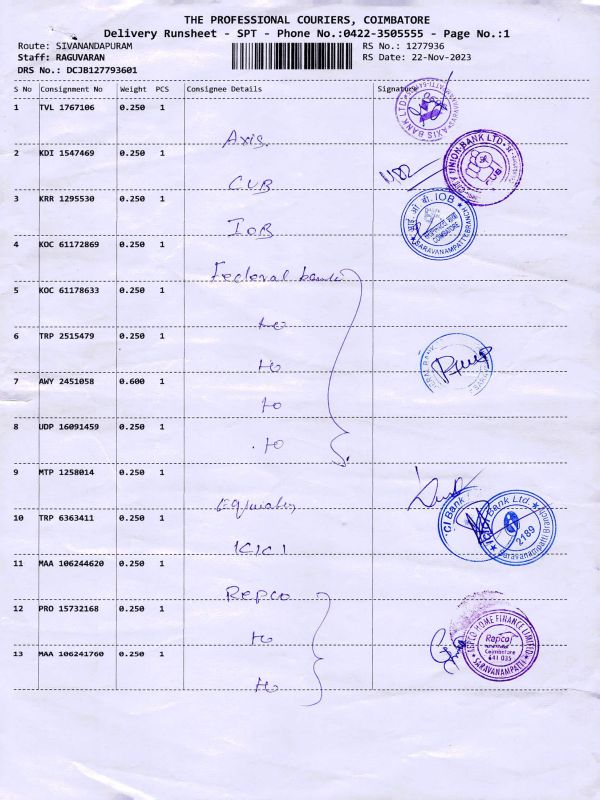 THE PROFESSIONAL COURIERS, COIMBATORE
Delivery Runsheet - SPT - Phone No.:0422-3505555 - Page No.:1
Route: SIVANANDAPURAM RS No.: 1277936
Staff: RAGUVARAN RS Date: 22-Nov-2023
DRS No.: DCJB127793601
S No Consignment No Weight PCS Consignee Details Signature
1 TVL 1767106 0.250 1
Axis. AXIS BANK LTD
2 KDI 1547469 0.250 1
CUB CITY UNION BANK LTD
3 KRR 1295530 0.250 1
IOB IOB COIMBATORE SARAVANAMPATTY BRANCH
4 KOC 61172869 0.250 1
Federal bank
5 KOC 61178633 0.250 1
6 TRP 2515479 0.250 1
7 AWY 2451058 0.600 1
8 UDP 16091459 0.250 1
9 MTP 1258014 0.250 1
10 TRP 6363411 0.250 1
ICICI ICICI Bank Ltd. 2189 Saravanampatti Branch
11 MAA 106244620 0.250 1
REPCO
12 PRO 15732168 0.250 1
REPCO HOME FINANCE LIMITED Repco Coimbatore 641 035 SARAVANAMPATTI
13 MAA 106241760 0.250 1